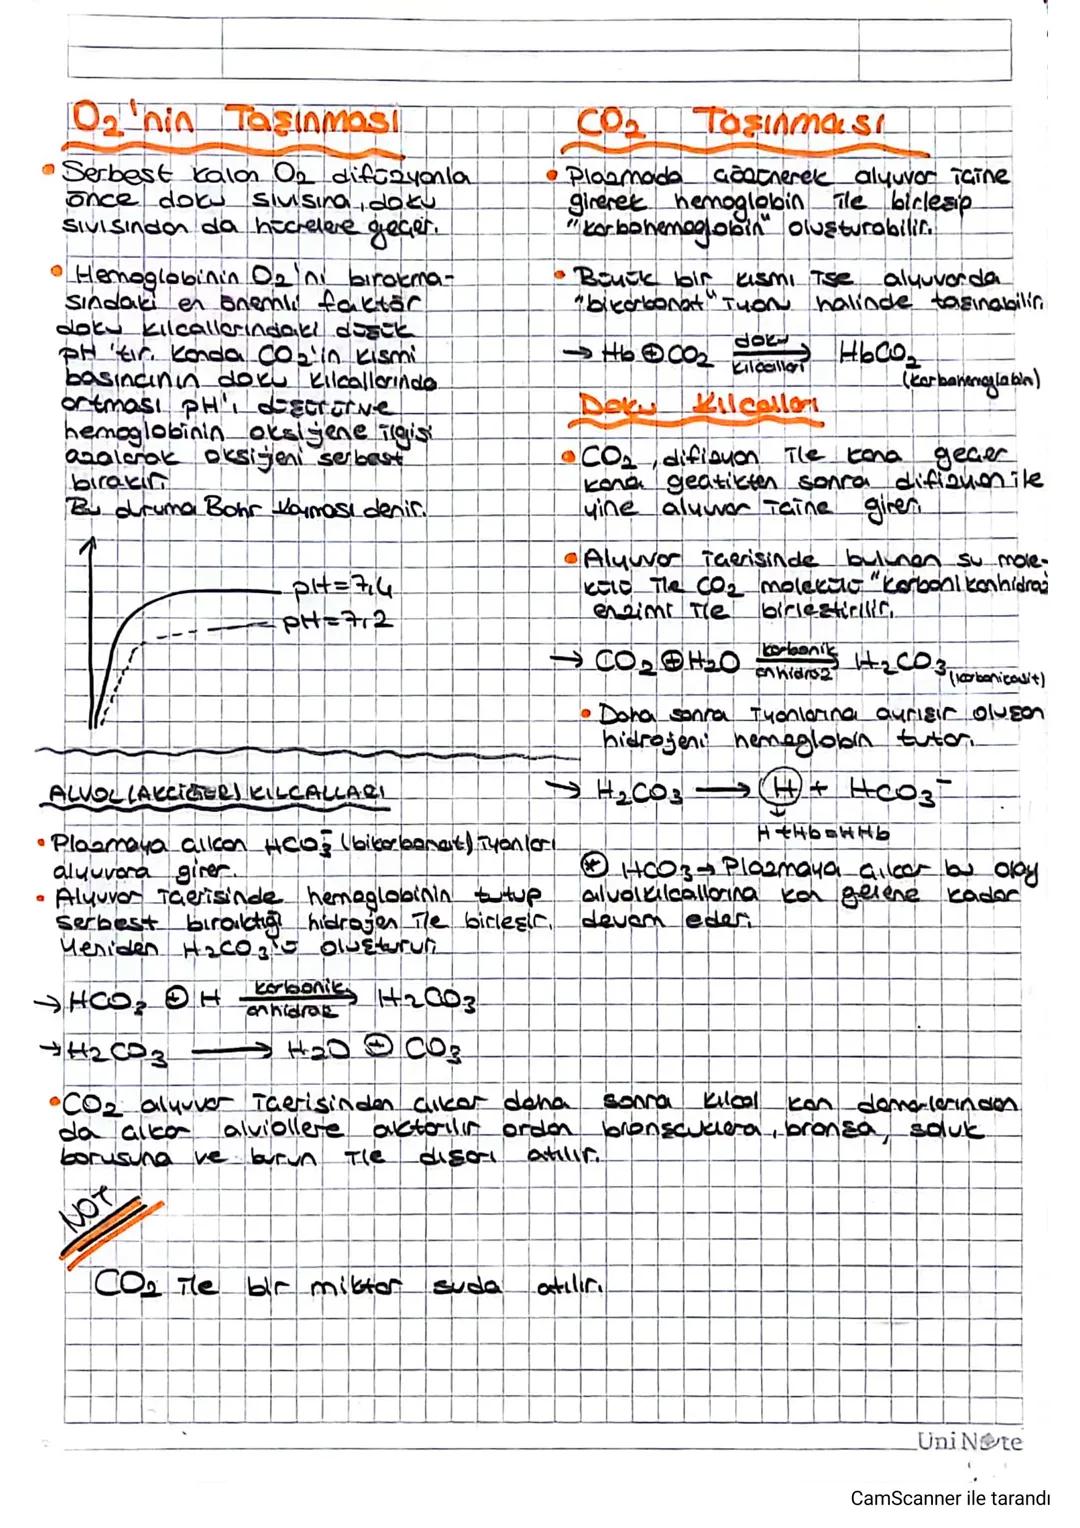 O2'nin Taşınması
• Serbest kalan O2 difüzyonla
önce doku sıvısına, doku
sıvısından da hücrelere geçer.
• Hemoglobinin O2'ni bırakma-
sındaki en önemli faktör
doku kılcallarındaki düşük
pH'tır. Kanda CO2'in kısmi
basıncının doku kılcallarında
artması pH'ı düşürür ve
hemoglobinin oksijene ilgisi
azalarak oksijeni serbest
bırakır.
Bu duruma Bohr kayması denir.
pH=7,4
pH=7,2
ALVOL (AKCİĞER) KILCALLARI
• Plazmaya çıkan HCO3⁻ (bikarbonat) iyonları
alyuvara girer.
• Alyuvar içerisinde hemoglobinin tutup
serbest bıraktığı hidrojen ile birleşir.
Yeniden H2CO3'ü oluşturur.
→ HCO3 ⊕ H karbonik anhidraz → H2CO3
→ H2CO3 → H2O ⊕ CO3
CO2 Taşınması
• Plazmada çözünerek alyuvar içine
girerek hemoglobin ile birleşip
"karbohemoglobin" oluşturabilir.
• Büyük bir kısmı ise alyuvarda
"bikarbonat" iyonu halinde taşınabilir.
→ Hb ⊕ CO2 doku kılcalları → HbCO2
(karbohemoglobin)
Doku Kılcalları
• CO2, difizyon ile kana geçer
kana geçtikten sonra difizyon ile
yine alyuvar içine girer.
• Alyuvar içerisinde bulunan su mole-
külü ile CO2 molekülü "karbonikanhidraz
enzimi ile birleştirilir.
→ CO2 ⊕ H2O karbonik anhidraz → H2CO3 (karbonicasit)
• Daha sonra iyonlarına ayrışır oluşan
hidrojeni hemoglobin tutar.
→ H2CO3 → H + HCO3⁻
H + Hb = HHb
⊛ HCO3 → Plazmaya çıkar bu olay
alvolkılcallarına kan gelene kadar
devam eder.
• CO2 alyuvar içerisinden çıkar daha sonra kılcal kan damarlarından
da çıkar alviollere aktarılır ordan bronşcuklara, bronşa, soluk
borusuna ve burun ile dışarı atılır.
NOT
CO2 ile bir miktar suda atılır.
Uni Note
CamScanner ile tarandı